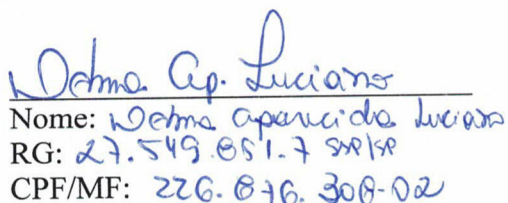 Delma Ap. Luciano
Nome: Delma Aparecida Luciano
RG: 27.549.851.7 SSP/SP
CPF/MF: 226.876.308-02